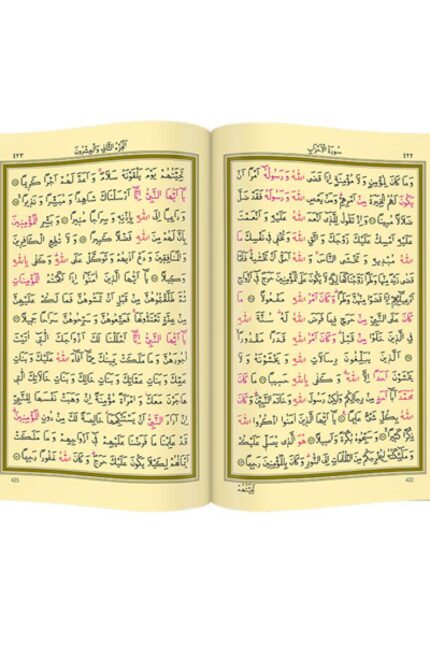 سُورَةُ الْاَحْزَابِ ٤٢٢
وَمَا كَانَ لِمُؤْمِنٍ وَلَا مُؤْمِنَةٍ اِذَا قَضَى اللّٰهُ وَرَسُولُهُٓ اَمْرًا اَنْ
يَكُونَ لَهُمُ الْخِيَرَةُ مِنْ اَمْرِهِمْ وَمَنْ يَعْصِ اللّٰهَ وَرَسُولَهُ فَقَدْ ضَلَّ
ضَلَالًا مُبِينًا وَاِذْ تَقُولُ لِلَّذِٓي اَنْعَمَ اللّٰهُ عَلَيْهِ وَاَنْعَمْتَ
عَلَيْهِ اَمْسِكْ عَلَيْكَ زَوْجَكَ وَاتَّقِ اللّٰهَ وَتُخْفِي فِي نَفْسِكَ مَا
اللّٰهُ مُبْدِيهِ وَتَخْشَى النَّاسَ وَاللّٰهُ اَحَقُّ اَنْ تَخْشٰيهُ فَلَمَّا قَضٰى
زَيْدٌ مِنْهَا وَطَرًا زَوَّجْنَاكَهَا لِكَيْ لَا يَكُونَ عَلَى الْمُؤْمِنِينَ حَرَجٌ فِٓي اَزْوَاجِ
اَدْعِيَٓائِهِمْ اِذَا قَضَوْا مِنْهُنَّ وَطَرًا وَكَانَ اَمْرُ اللّٰهِ مَفْعُولًا مَا
كَانَ عَلَى النَّبِيِّ مِنْ حَرَجٍ فِيمَا فَرَضَ اللّٰهُ لَهُ سُنَّةَ اللّٰهِ
فِي الَّذِينَ خَلَوْا مِنْ قَبْلُ وَكَانَ اَمْرُ اللّٰهِ قَدَرًا مَقْدُورًا
اَلَّذِينَ يُبَلِّغُونَ رِسَالَاتِ اللّٰهِ وَيَخْشَوْنَهُ وَلَا
يَخْشَوْنَ اَحَدًا اِلَّا اللّٰهَ وَكَفٰى بِاللّٰهِ حَسِيبًا مَا كَانَ
مُحَمَّدٌ اَبَٓا اَحَدٍ مِنْ رِجَالِكُمْ وَلٰكِنْ رَسُولَ اللّٰهِ وَخَاتَمَ النَّبِيِّنَ وَكَانَ
اللّٰهُ بِكُلِّ شَيْءٍ عَلِيمًا يَٓا اَيُّهَا الَّذِينَ اٰمَنُوا اذْكُرُوا اللّٰهَ
ذِكْرًا كَثِيرًا وَسَبِّحُوهُ بُكْرَةً وَاَصِيلًا هُوَ الَّذِي يُصَلِّي عَلَيْكُمْ
وَمَلٰٓئِكَتُهُ لِيُخْرِجَكُمْ مِنَ الظُّلُمَاتِ اِلَى النُّورِ وَكَانَ بِالْمُؤْمِنِينَ رَحِيمًا
422
تَحِيَّتُهُمْ
اَلْجُزْءُ الثَّانِي وَالْعِشْرُونَ ٤٢٣
تَحِيَّتُهُمْ يَوْمَ يَلْقَوْنَهُ سَلَامٌ وَاَعَدَّ لَهُمْ اَجْرًا كَرِيمًا
يَٓا اَيُّهَا النَّبِيُّ اِنَّٓا اَرْسَلْنَاكَ شَاهِدًا وَمُبَشِّرًا وَنَذِيرًا
وَدَاعِيًا اِلَى اللّٰهِ بِاِذْنِهِ وَسِرَاجًا مُنِيرًا وَبَشِّرِ الْمُؤْمِنِينَ
بِاَنَّ لَهُمْ مِنَ اللّٰهِ فَضْلًا كَبِيرًا وَلَا تُطِعِ الْكَافِرِينَ
وَالْمُنَافِقِينَ وَدَعْ اَذٰيهُمْ وَتَوَكَّلْ عَلَى اللّٰهِ وَكَفٰى بِاللّٰهِ
وَكِيلًا يَٓا اَيُّهَا الَّذِينَ اٰمَنُٓوا اِذَا نَكَحْتُمُ الْمُؤْمِنَاتِ
ثُمَّ طَلَّقْتُمُوهُنَّ مِنْ قَبْلِ اَنْ تَمَسُّوهُنَّ فَمَا لَكُمْ عَلَيْهِنَّ
مِنْ عِدَّةٍ تَعْتَدُّونَهَا فَمَتِّعُوهُنَّ وَسَرِّحُوهُنَّ سَرَاحًا جَمِيلًا
يَٓا اَيُّهَا النَّبِيُّ اِنَّٓا اَحْلَلْنَا لَكَ اَزْوَاجَكَ الّٰتِٓي اٰتَيْتَ
اُجُورَهُنَّ وَمَا مَلَكَتْ يَمِينُكَ مِمَّٓا اَفَٓاءَ اللّٰهُ عَلَيْكَ وَبَنَاتِ
عَمِّكَ وَبَنَاتِ عَمَّاتِكَ وَبَنَاتِ خَالِكَ وَبَنَاتِ خَالَاتِكَ الّٰتِي
هَاجَرْنَ مَعَكَ وَامْرَاَةً مُؤْمِنَةً اِنْ وَهَبَتْ نَفْسَهَا لِلنَّبِيِّ
اِنْ اَرَادَ النَّبِيُّ اَنْ يَسْتَنْكِحَهَا خَالِصَةً لَكَ مِنْ دُونِ الْمُؤْمِنِينَ
قَدْ عَلِمْنَا مَا فَرَضْنَا عَلَيْهِمْ فِٓي اَزْوَاجِهِمْ وَمَا مَلَكَتْ
اَيْمَانُهُمْ لِكَيْلَا يَكُونَ عَلَيْكَ حَرَجٌ وَكَانَ اللّٰهُ غَفُورًا رَحِيمًا
423